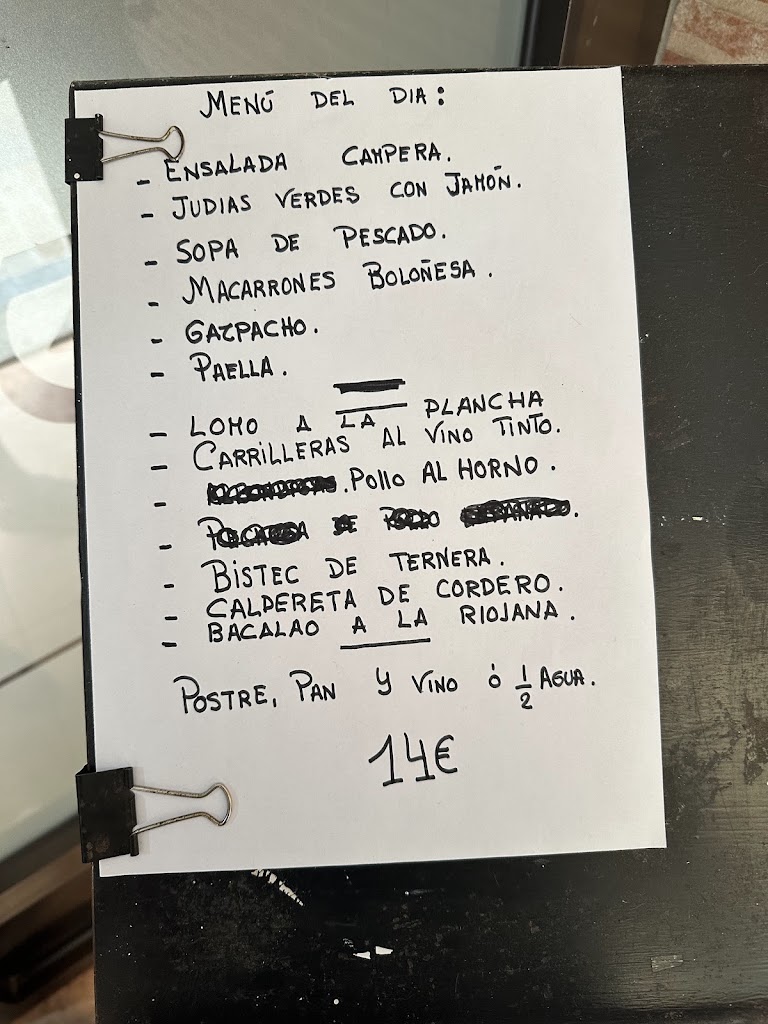 MENÚ DEL DIA:
- ENSALADA CAMPERA.
- JUDIAS VERDES CON JAMÓN.
- SOPA DE PESCADO.
- MACARRONES BOLOÑESA.
- GAZPACHO.
- PAELLA.
- LOMO A LA PLANCHA
- CARRILLERAS AL VINO TINTO.
- .Pollo AL HORNO.
- BISTEC DE TERNERA.
- CALDERETA DE CORDERO.
- BACALAO A LA RIOJANA.
POSTRE, PAN Y VINO Ó 1/2 AGUA.
14€